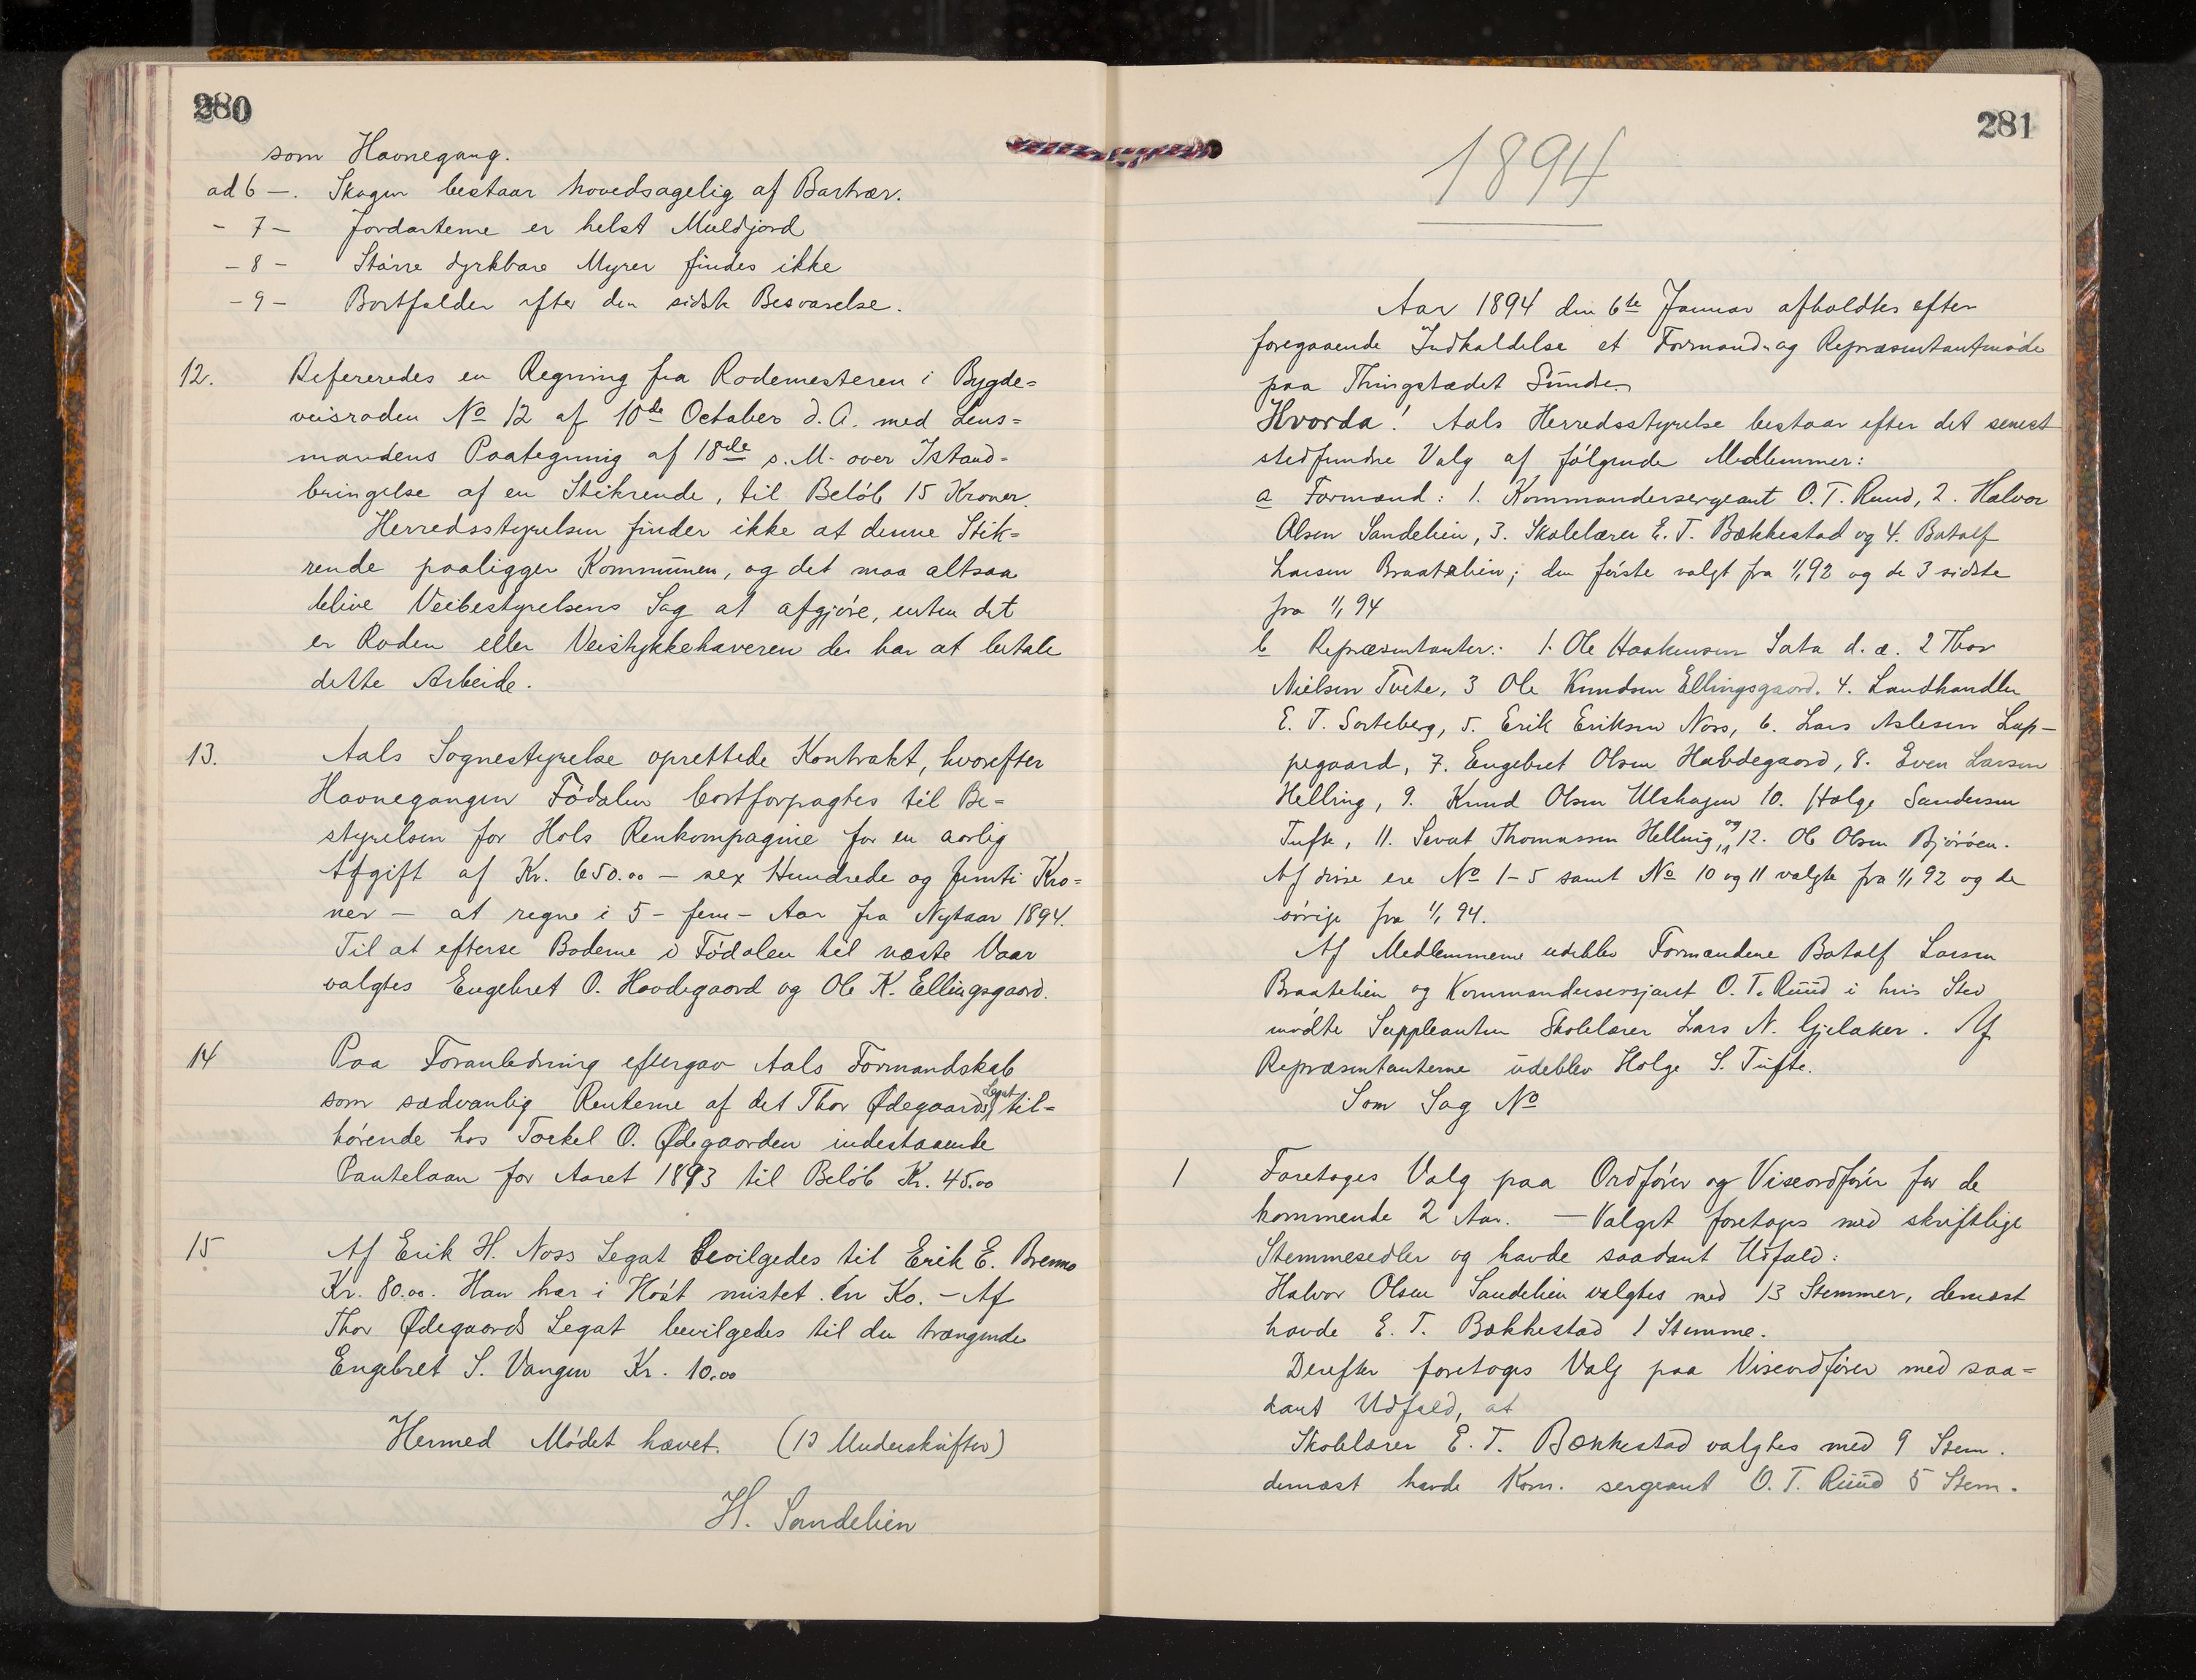 280
som Havnegang.
ad 6 —. Skogen bestaar hovedsagelig af Bartrær.
- 7 — Jordarterne er helst Muldjord
- 8 - Større dyrkbare Myrer findes ikke
- 9 - Bortfalder efter den sidste Besvarelse.
12. Refereredes en Regning fra Rodemesteren i Bygde=
veisroden No 12 af 10de October d. A. med Lens=
mandens Paategning af 18de s. M. over Istand-
bringelse af en Stikrende, til Beløb 15 Kroner.
Herredsstyrelsen finder ikke at denne Stik=
rende paaligger Kommunen, og det maa altsaa
blive Veibestyrelsens Sag at afgjøre, enten det
er Roden eller Veistykkehaveren der har at betale
dette Arbeide.
13. Aals Sognestyrelse oprettede Kontrakt, hvorefter
Havnegangen Fødalen bortforpagtes til Be=
styrelsen for Hols Renkompagnie for en aarlig
Afgift af Kr. 650.00 — sex Hundrede og femti Kro=
ner — at regne i 5 - fem - Aar fra Nytaar 1894.
Til at efterse Boderne i Fødalen til næste Vaar
valgtes Engebret O. Hovdegaard og Ole K. Ellingsgaard.
14 Paa Foranledning eftergav Aals Formandskab
som sædvanlig Renterne af det Thor Ødegaards Legat til=
hørende hos Torkel O. Ødegaarden indestaaende
Pantelaan for Aaret 1893 til Beløb Kr. 45.00
15 Af Erik H. Noss Legat bevilgedes til Erik E. Brenno
Kr. 80.00. Han har i Høst mistet en Ko. — Af
Thor Ødegaards Legat bevilgedes til den trængende
Engebret S. Vangen Kr. 10.00
Hermed Mødet hævet. (13 Underskrifter)
H. Sandelien
281
1894
Aar 1894 den 6te Januar afholdtes efter
foregaaende Indkaldelse et Formand- og Repræsentantmøde
paa Thingstædet Sundre
Hvorda! Aals Herredsstyrelse bestaar efter det senest
stedfundne Valg af følgende Medlemmer:
a Formænd: 1. Kommandersergeant O. T. Ruud, 2. Halvor
Olsen Sandelien, 3. Skolelærer E. T. Bækkestad og 4. Botolf
Larsen Braatelien; den første valgt fra 1/1 92 og de 3 sidste
fra 1/1 94
b Repræsentanter: 1. Ole Haakensen Sata d. æ. 2 Thor
Nielsen Tveite, 3 Ole Knudsen Ellingsgaard. 4. Landhandler
E. T. Sorteberg, 5. Erik Eriksen Noss, 6. Lars Aslesen Lap-
pegaard, 7. Engebret Olsen Hovdegaard, 8. Even Larsen
Helling, 9. Knud Olsen Ulshagen 10. Holge Sandersen
Tufte, 11. Sevat Thomassen Helling, og 12. Ole Olsen Bjørøen.
Af disse ere No 1-5 samt No 10 og 11 valgte fra 1/1 92 og de
øvrige fra 1/1 94.
Af Medlemmerne udeblev Formændene Botolf Larsen
Braatelien og Kommandersersjant O. T. Ruud i hvis Sted
mødte Suppleanten Skolelærer Lars N. Gjelaker. Af
Repræsentanterne udeblev Holge S. Tufte.
Som Sag No
1 Foretoges Valg paa Ordfører og Viseordfører for de
kommende 2 Aar. — Valget foretoges med skriftlige
Stemmesedler og havde saadant Udfald:
Halvor Olsen Sandelien valgtes med 13 Stemmer, dernæst
havde E. T. Bækkestad 1 Stemme.
Derefter foretoges Valg paa Viseordfører med saa=
dant Udfald, at
Skolelærer E. T. Bækkestad valgtes med 9 Stem.
dernæst havde Kom. sergeant O. T. Ruud 5 Stem.